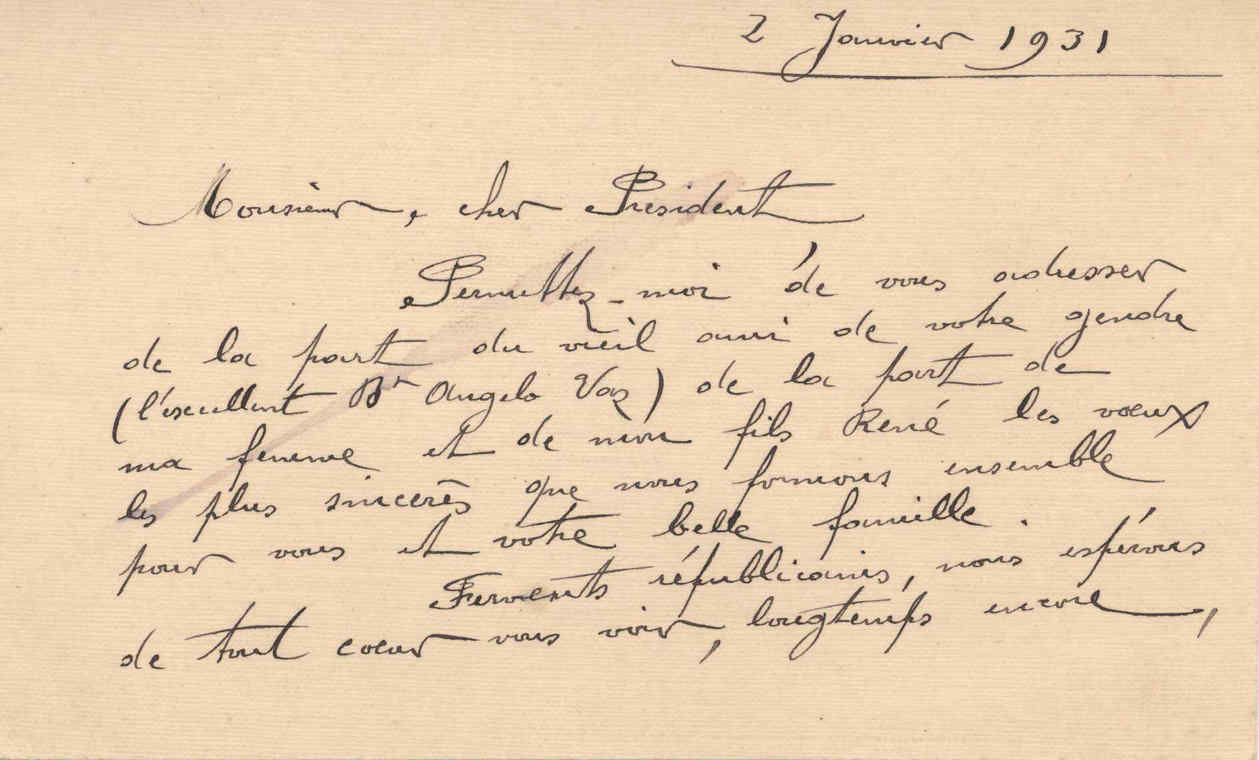 2 Janvier 1931
Monsieur, cher Président
Permettez-moi de vous adresser
de la part du vieil ami de votre gendre
(l'excellent Dr Angelo Vaz) de la part de
ma femme et de mon fils René les vœux
les plus sincères que nous formons ensemble
pour vous et votre belle famille.
Fervents républicains, nous espérons
de tout cœur vous voir, longtemps encore,